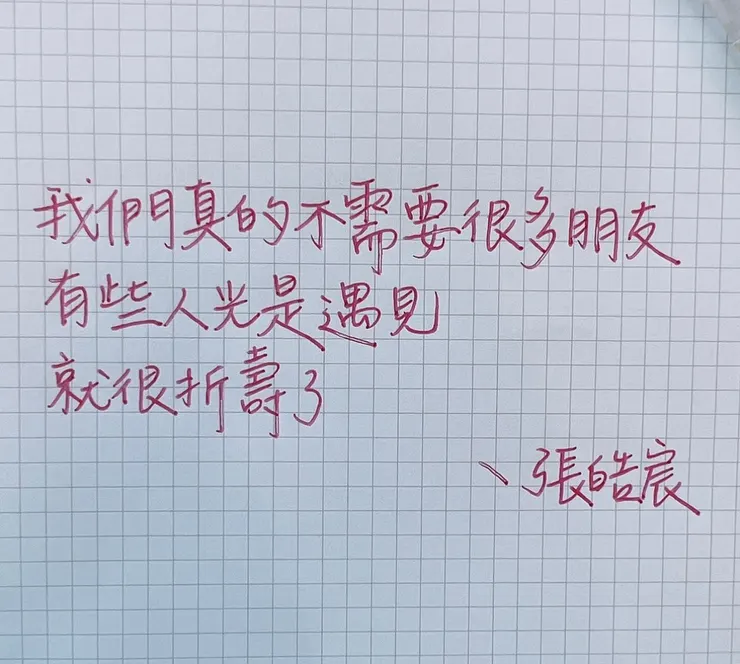 我們真的不需要很多朋友
有些人光是遇見
就很折壽了
、張皓宸